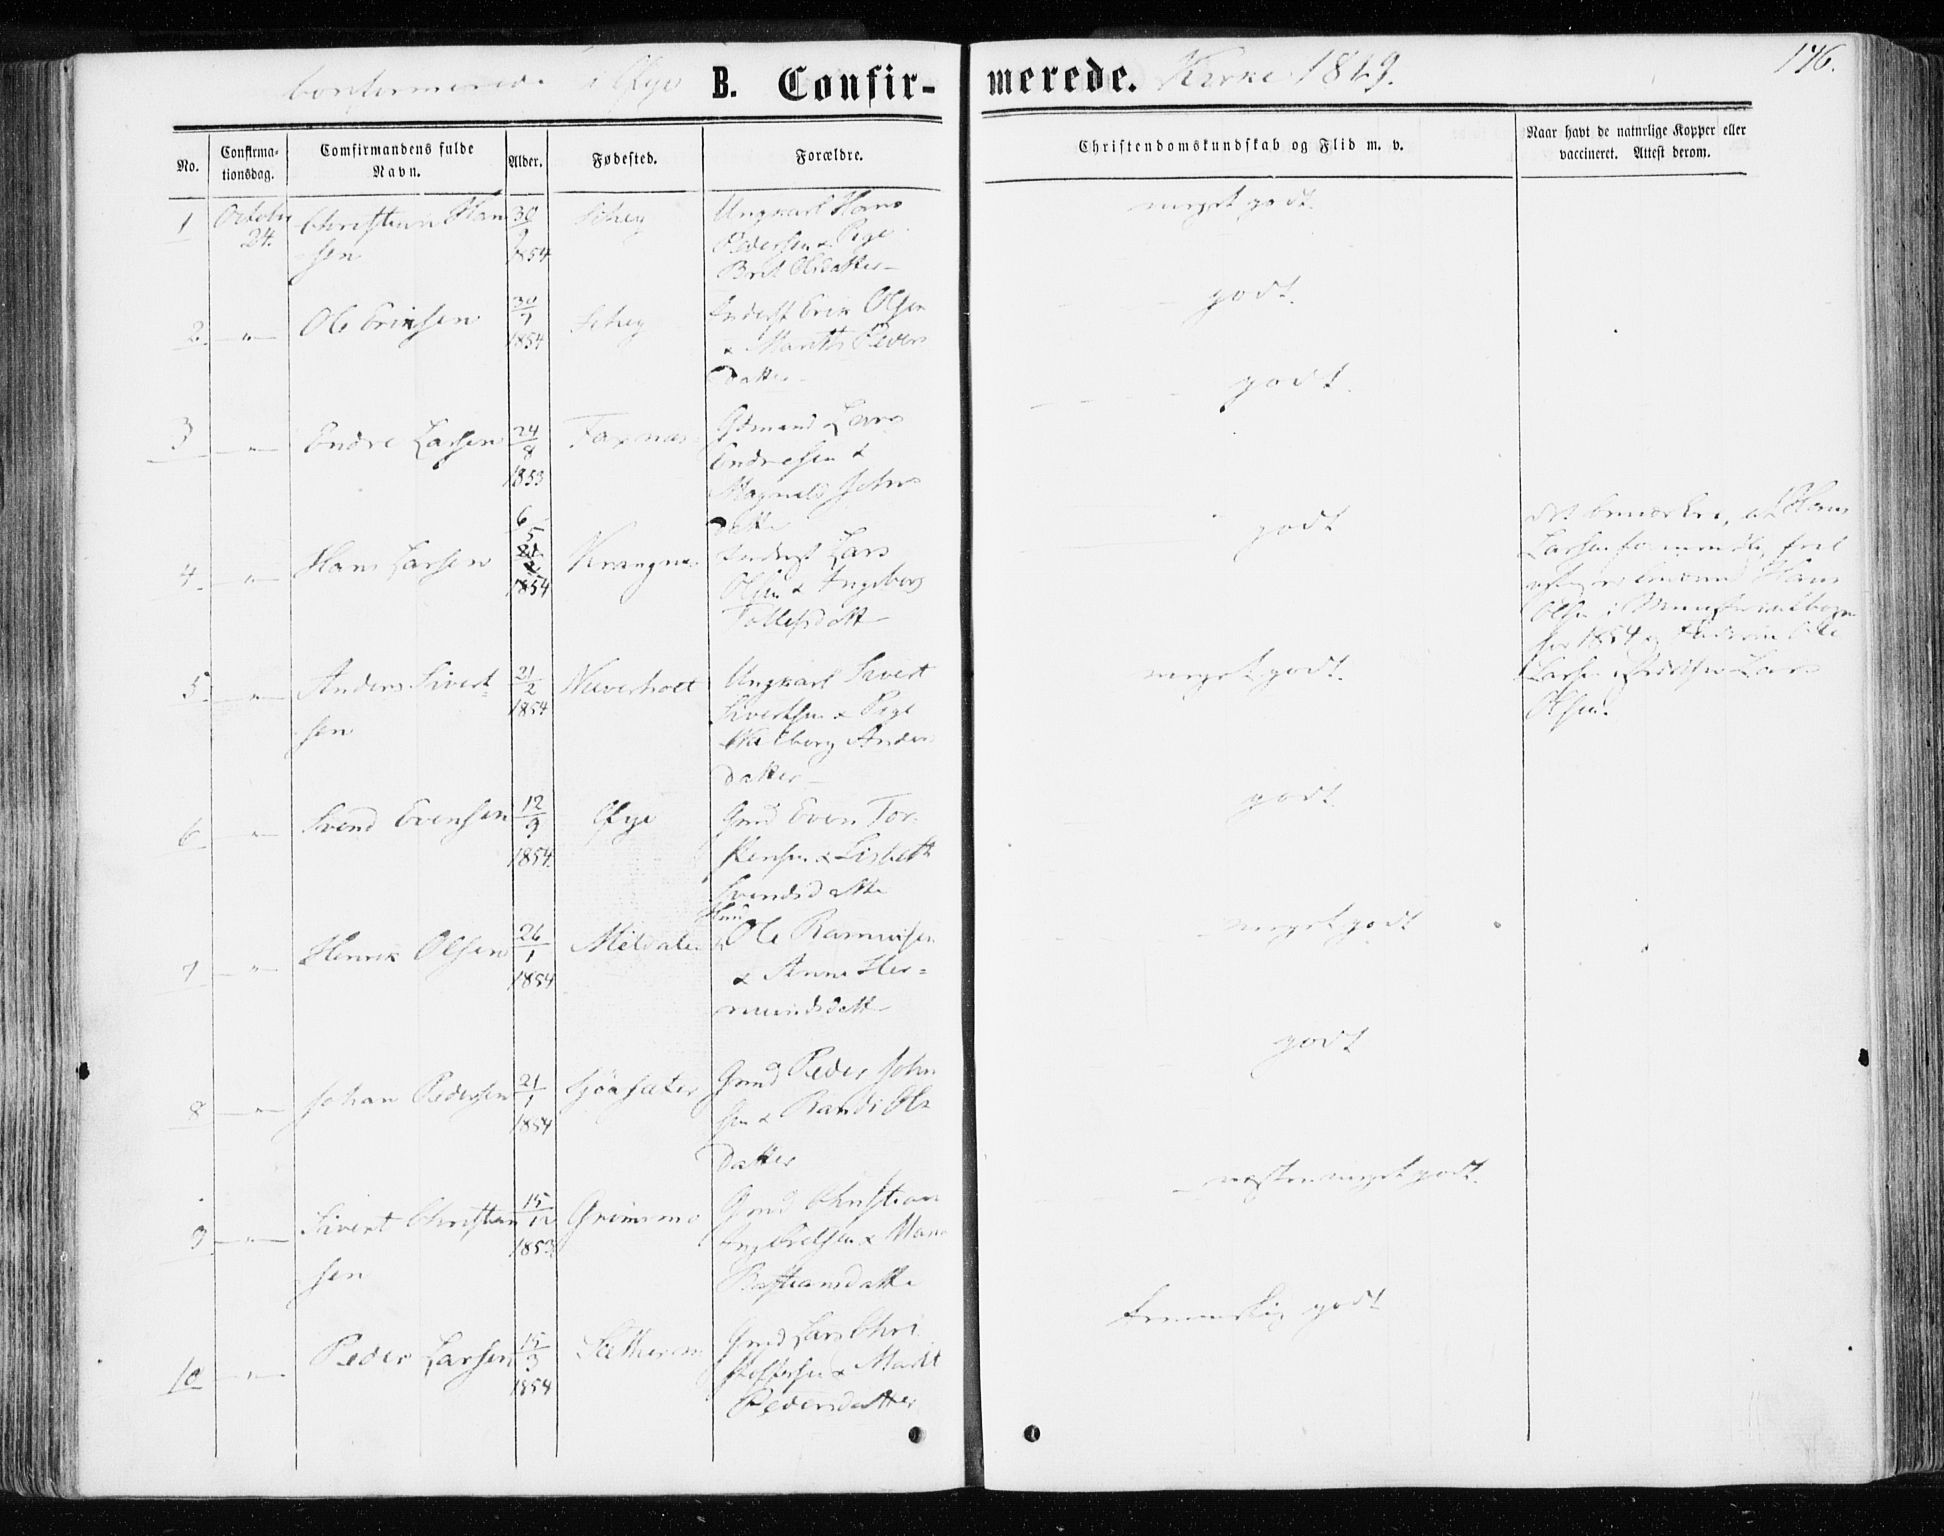 Confirmerede i Øye B. Confirmerede. Kirke 1869. 176.
No. Confirmationsdag. Comfirmandens fulde Navn. Alder. Fødested. Forældre. Christendomskundskab og Flid m. v. Naar havt de naturlige Kopper eller vaccineret. Attest derom.
1 October 24. Christian Han
sen 30/9 1854 Ungkarl Hans
Pedersen & Pige
Brit Olsdatter
meget godt.
2. " Ole Eriksen 30/7 1854 Inderst Erik Olsen
& Marith Peders
datter
godt.
3 " Endre Larsen 24/8 1853 Foxnæs Gbmand Lars
Endresen &
Magnild Johns
datter
godt.
4. " Hans Larsen 6/5 1854 Krangnes Inderst Lars
Olsen & Ingeborg
Tollefsdatt
godt
det bemærkes, at Hans
Larsen
Hans
Olsen i Ministerialbogen
for 1854 og Faderen Ole
Larsen istedetfor Lars
Olsen.
5. " Anders Sivert-
sen 21/2 1854 Neverholt Ungkarl Sivert
Sivertsen & Pige
Anders
datter
meget godt.
6 " Svend Evensen 12/9 1854. Øye Gmd Even Tor-
kensen & Lisbeth
Svendsdatter
godt
7 " Henrik Olsen 26/1 1854 Meldalen Ole Rasmussen
& Anne Her-
mundsdatt
meget godt
8 " Johan Pedersen 21/1 1854 Sjöasæter Gmd Peder John
sen & Randi Ols
datter
godt
9 " Sivert Christian
sen 15/12 1853 Grimsmo Gmd Christian
Ingebretsen &
Bastiansdatter
næsten meget godt.
10 " Peder Larsen 15/3 1854 Gmd Lars Chri
stoffersen & Marit
Pedersdatter
temmelig godt